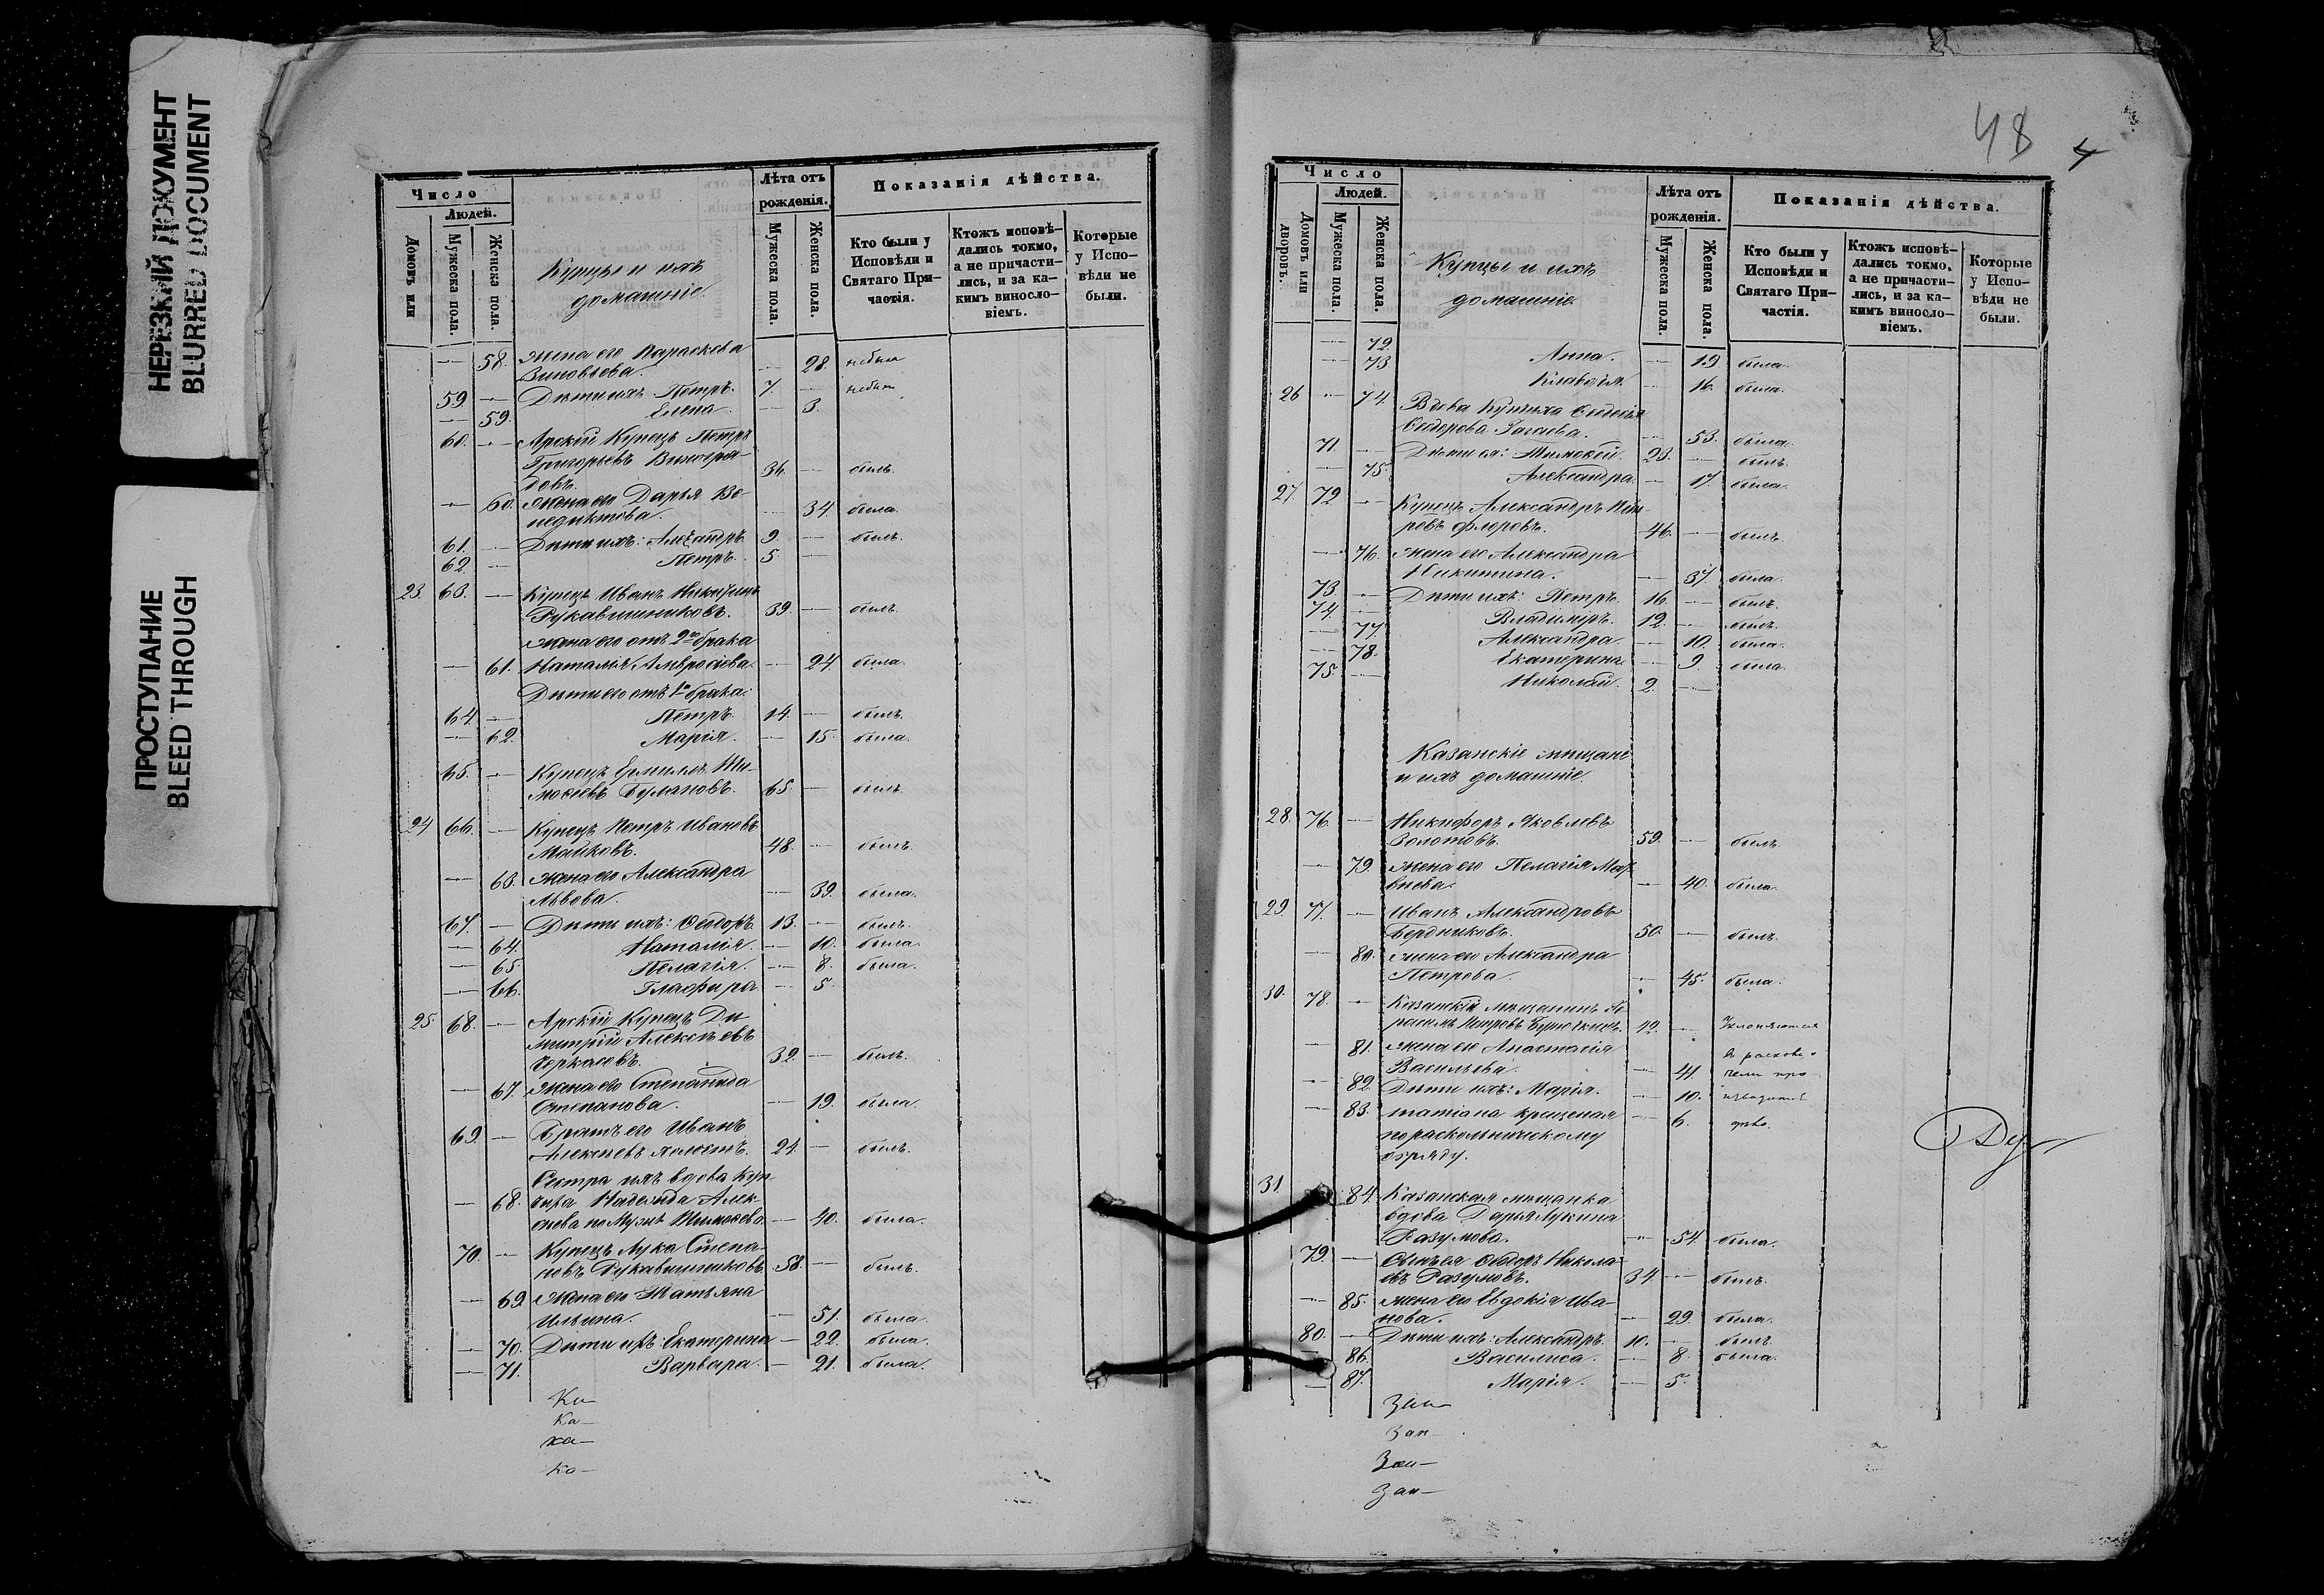 НЕРЕЗКИЙ ДОКУМЕНТ
BLURRED DOCUMENT
ПРОСТУПАНИЕ
BLEED THROUGH
Число
Людей.
Домовъ или
Мужеска пола.
Женска пола.
Купцы и ихъ
домашніе.
Лѣта отъ
рожденія.
Мужеска пола.
Женска пола.
Показанія дѣйства.
Кто были у
Исповѣди и
Святаго При-
частія.
Ктожъ исповѣ-
дались токмо,
а не причасти-
лись, и за ка-
кимъ винсло-
віемъ.
Которые
у Испо-
вѣди не
были.
— 58. Жена его Параскева
Зиновьева. — 28.
59. — Дѣти ихъ Петръ. 7. —
— 59. Елена. — 3.
60. — Арскій Купецъ Петръ
Григорьевъ Виногра-
довъ. 36. — былъ.
— 60. Жена его Дарья Ве-
недиктова. — 34. была.
61. — Дѣти ихъ: Александръ 9 — былъ.
62. — Петръ. 5 —
23. 63. — Купецъ Иванъ
Рукавишниковъ. 39. — былъ.
Жена его отъ 2го брака
— 61. Наталія Амвросіева. — 24. была.
Дѣти его отъ 1го брака:
64. — Петръ. 14. — былъ.
— 62. Марія. — 15. была.
65. — Купецъ Ермилъ Ти-
моѳеевъ 65. — былъ.
24 66. — Купецъ Петръ Ивановъ
48. — былъ.
— 63. Жена его Александра
Львова. — 39. была.
67. — Дѣти ихъ: Ѳеодоръ 13. — былъ.
— 64. Наталія. — 10. была.
— 65. Пелагія. — 8. была.
— 66. Глафира — 5.
25. 68. — Арскій Купецъ Ди-
митрій Алексѣевъ
Черкасовъ. 32. — былъ.
— 67. Жена его Степанида
Степанова. — 19. была.
69 — Братъ его Иванъ
Алексѣевъ холостъ. 24. — былъ.
Сестра ихъ вдова Куп-
— 68. чиха Надежда Алек-
сѣева по Мужѣ Тимоѳеева. — 40. была.
70. — Купецъ Лука Степа-
новъ Рукавишниковъ. 58. — былъ.
— 69 Жена его Татьяна
Ильина. — 51. была.
— 70. Дѣти ихъ: Екатерина — 22. была.
— 71. Варвара. — 21. была.
Ка—
Ка—
Ка—
Ка—
48
4
Число
Людей.
Домовъ или
дворовъ.
Мужеска пола.
Женска пола.
Купцы и ихъ
домашніе.
Лѣта отъ
рожденія.
Мужеска пола.
Женска пола.
Показанія дѣйства.
Кто были у
Исповѣди и
Святаго При-
частія.
Ктожъ исповѣ-
дались токмо,
а не причасти-
лись, и за ка-
кимъ винсло-
віемъ.
Которые
у Испо-
вѣди не
были.
— 72. Анна. — 19 была.
— 73 Клавдія. — 16. была.
26 — 74. Вдова Купчиха Ѳеодосія
Ѳеодорова — 53. была.
71. — Дѣти ея: Тимоѳей. 23. — былъ.
— 75. Александра. — 17. была.
27. 72 — Купецъ Александръ Пет-
ровъ Флоровъ. 46. — былъ.
— 76. Жена его Александра
Никитина. — 37. была.
73. — Дѣти ихъ: Петръ. 16. — былъ.
74. — Владиміръ. 12. — былъ.
— 77. Александра — 10. была.
— 78. Екатерина — 9. была.
75. — Николай. 2. —
Казанскіе мѣщане
и ихъ домашніе.
28. 76. — Никифоръ Яковлевъ
Золотовъ. 59. — былъ.
— 79. Жена его Пелагія Мат-
вѣева. — 40. была.
29. 77. — Иванъ Александровъ
Бердниковъ. 50. — былъ.
— 80. Жена его Александра
Петрова. — 45. была.
30. 78. — Казанскій мѣщанинъ Ге-
расимъ Петровъ 42. — Уклоняются
— 81. Жена его Анастасія въ раско-
Васильева. — 41.
— 82. Дѣти ихъ: Марія. — 10.
— 83. Татіана крещеная — 6.
по раскольническому
обряду.
31. — 84. Казанская мѣщанка
вдова Дарья Лукина
Разумова. — 54. была.
79. — Сынъ ея Ѳедоръ Никола-
евъ Разумовъ. 34 — былъ.
— 85. Жена его Евдокія Ива-
нова. — 29. была.
80. — Дѣти ихъ: Александръ. 10. — былъ.
— 86. Василиса. — 8. была.
— 87. Марія. — 5.
Зан—
Зан—
Зан—
Зан—